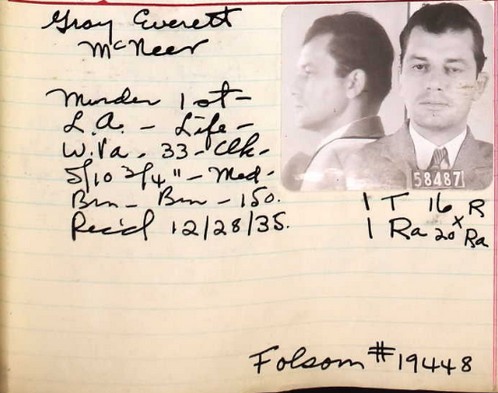 Gray Everett
McNeer
Murder 1st -
L.A. - Life -
W.Va. - 33 - Clk -
5/10 3/4" - Med -
Brn - Brn - 150.
Rec'd 12/28/35.
58487
1 T 16 R
1 Ra 20 x Ra
Folsom # 19448